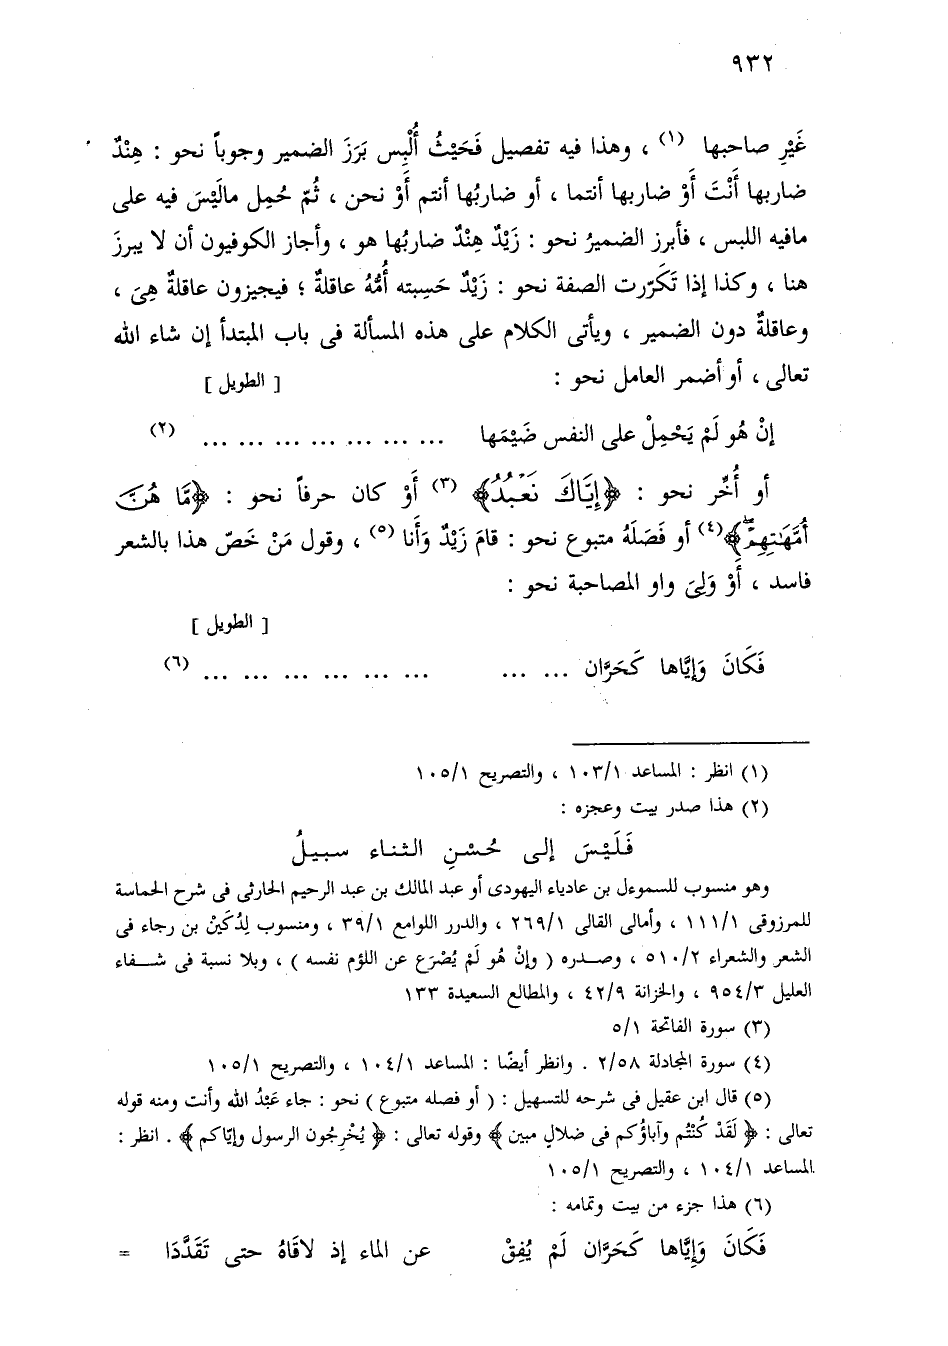 ٩٣٢
غَيْرِ صاحبها (١) ، وهذا فيه تفصيل فَحَيْثُ أُلْبِس بَرَزَ الضمير وجوباً نحو : هِنْدٌ
ضاربها أَنْتَ أَوْ ضاربها أنتما ، أو ضاربُها أنتم أَوْ نحن ، ثُمّ حُمِل مالَيْسَ فيه على
مافيه اللبس ، فأبرز الضميرُ نحو : زَيْدٌ هِنْدٌ ضاربُها هو ، وأجاز الكوفيون أن لا يبرزَ
هنا ، وكذا إذا تَكَرّرت الصفة نحو : زَيْدٌ حَسِبته أُمُّهُ عاقلةٌ ؛ فيجيزون عاقلةٌ هِىَ ،
وعاقلةٌ دون الضمير ، ويأتى الكلام على هذه المسألة فى باب المبتدأ إن شاء الله
تعالى ، أو أضمر العامل نحو : [ الطويل ]
إنْ هُو لَمْ يَحْمِلْ على النفس ضَيْمَها ... ... ... ... ... ... ... (٢)
أو أُخِّر نحو : ﴿إِيَّاكَ نَعْبُدُ﴾ (٣) أَوْ كان حرفاً نحو : ﴿مَّا هُنَّ
أُمَّهَٰتِهِمْۖ﴾(٤) أو فَصَلَهُ متبوع نحو : قامَ زَيْدٌ وَأَنا (٥) ، وقول مَنْ خَصّ هذا بالشعر
فاسد ، أَوْ وَلِىَ واو المصاحبة نحو :
[ الطويل ]
فَكَانَ وَإِيَّاها كَحَرَّان ... ... ... ... ... ... ... ... (٦)
(١) انظر : المساعد ١٠٣/١ ، والتصريح ١٠٥/١
(٢) هذا صدر بيت وعجزه :
فَلَيْسَ إلى حُسْنِ الثناء سبيلُ
وهو منسوب للسموءل بن عادياء اليهودى أو عبد المالك بن عبد الرحيم الحارثى فى شرح الحماسة
للمرزوقى ١١١/١ ، وأمالى القالى ٢٦٩/١ ، والدرر اللوامع ٣٩/١ ، ومنسوب لِدُكَيْنْ بن رجاء فى
الشعر والشعراء ٥١٠/٢ ، وصـدره ( وإنْ هُو لَمْ يُصْرَع عن اللؤم نفسه ) ، وبلا نسبة فى شـفاء
العليل ٩٥٤/٣ ، والخزانة ٤٢/٩ ، والمطالع السعيدة ١٣٣
(٣) سورة الفاتحة ٥/١
(٤) سورة المجادلة ٢/٥٨ . وانظر أيضًا : المساعد ١٠٤/١ ، والتصريح ١٠٥/١
(٥) قال ابن عقيل فى شرحه للتسهيل : ( أو فصله متبوع ) نحو : جاء عَبْدُ الله وأنت ومنه قوله
تعالى : ﴿ لَقَدْ كُنْتُم وآباؤُكم فى ضلالٍ مبين ﴾ وقوله تعالى : ﴿ يُخْرِجُون الرسول وإيّاكم ﴾ . انظر :
المساعد ١٠٤/١ ، والتصريح ١٠٥/١
(٦) هذا جزء من بيت وتمامه :
فَكَانَ وَإِيَّاها كَحَرَّان لَمْ يُفِقْ عن الماء إذ لاقَاهُ حتى تَقَدَّدَا =